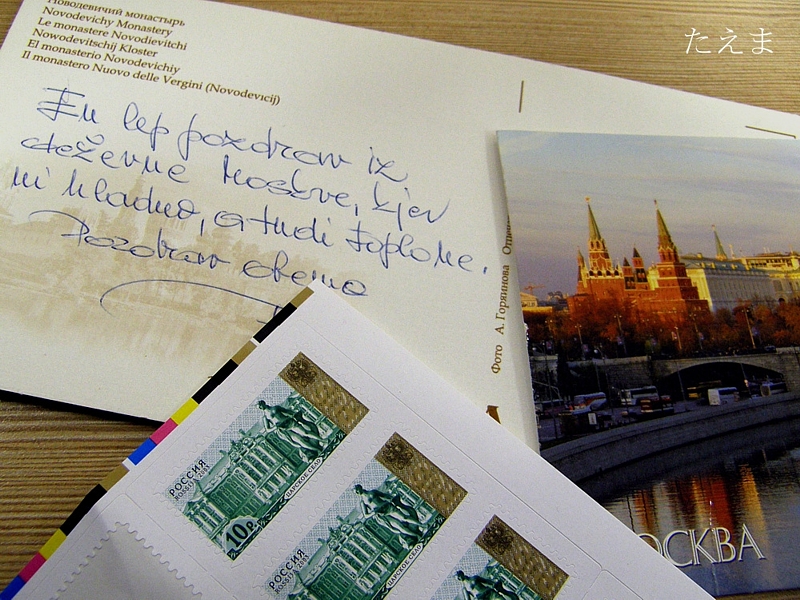 Новодевичий монастырь
Novodevichy Monastery
Le monastere Novodievitchi
Nowodewitschij Kloster
El monasterio Novodevichiy
Il monastero Nuovo delle Vergini (Novodevicij)
En lep pozdrav iz
deževne Moskve, kjer
ni hladno, a tudi toplo ne.
Pozdrav obema
たえま
Фото А. Горяинова
РОССИЯ
ROSSIA 2003
10р
ЦАРСКОЕ СЕЛО
РОССИЯ
ROSSIA 2003
ЦАРСКОЕ СЕЛО
ОСКВА